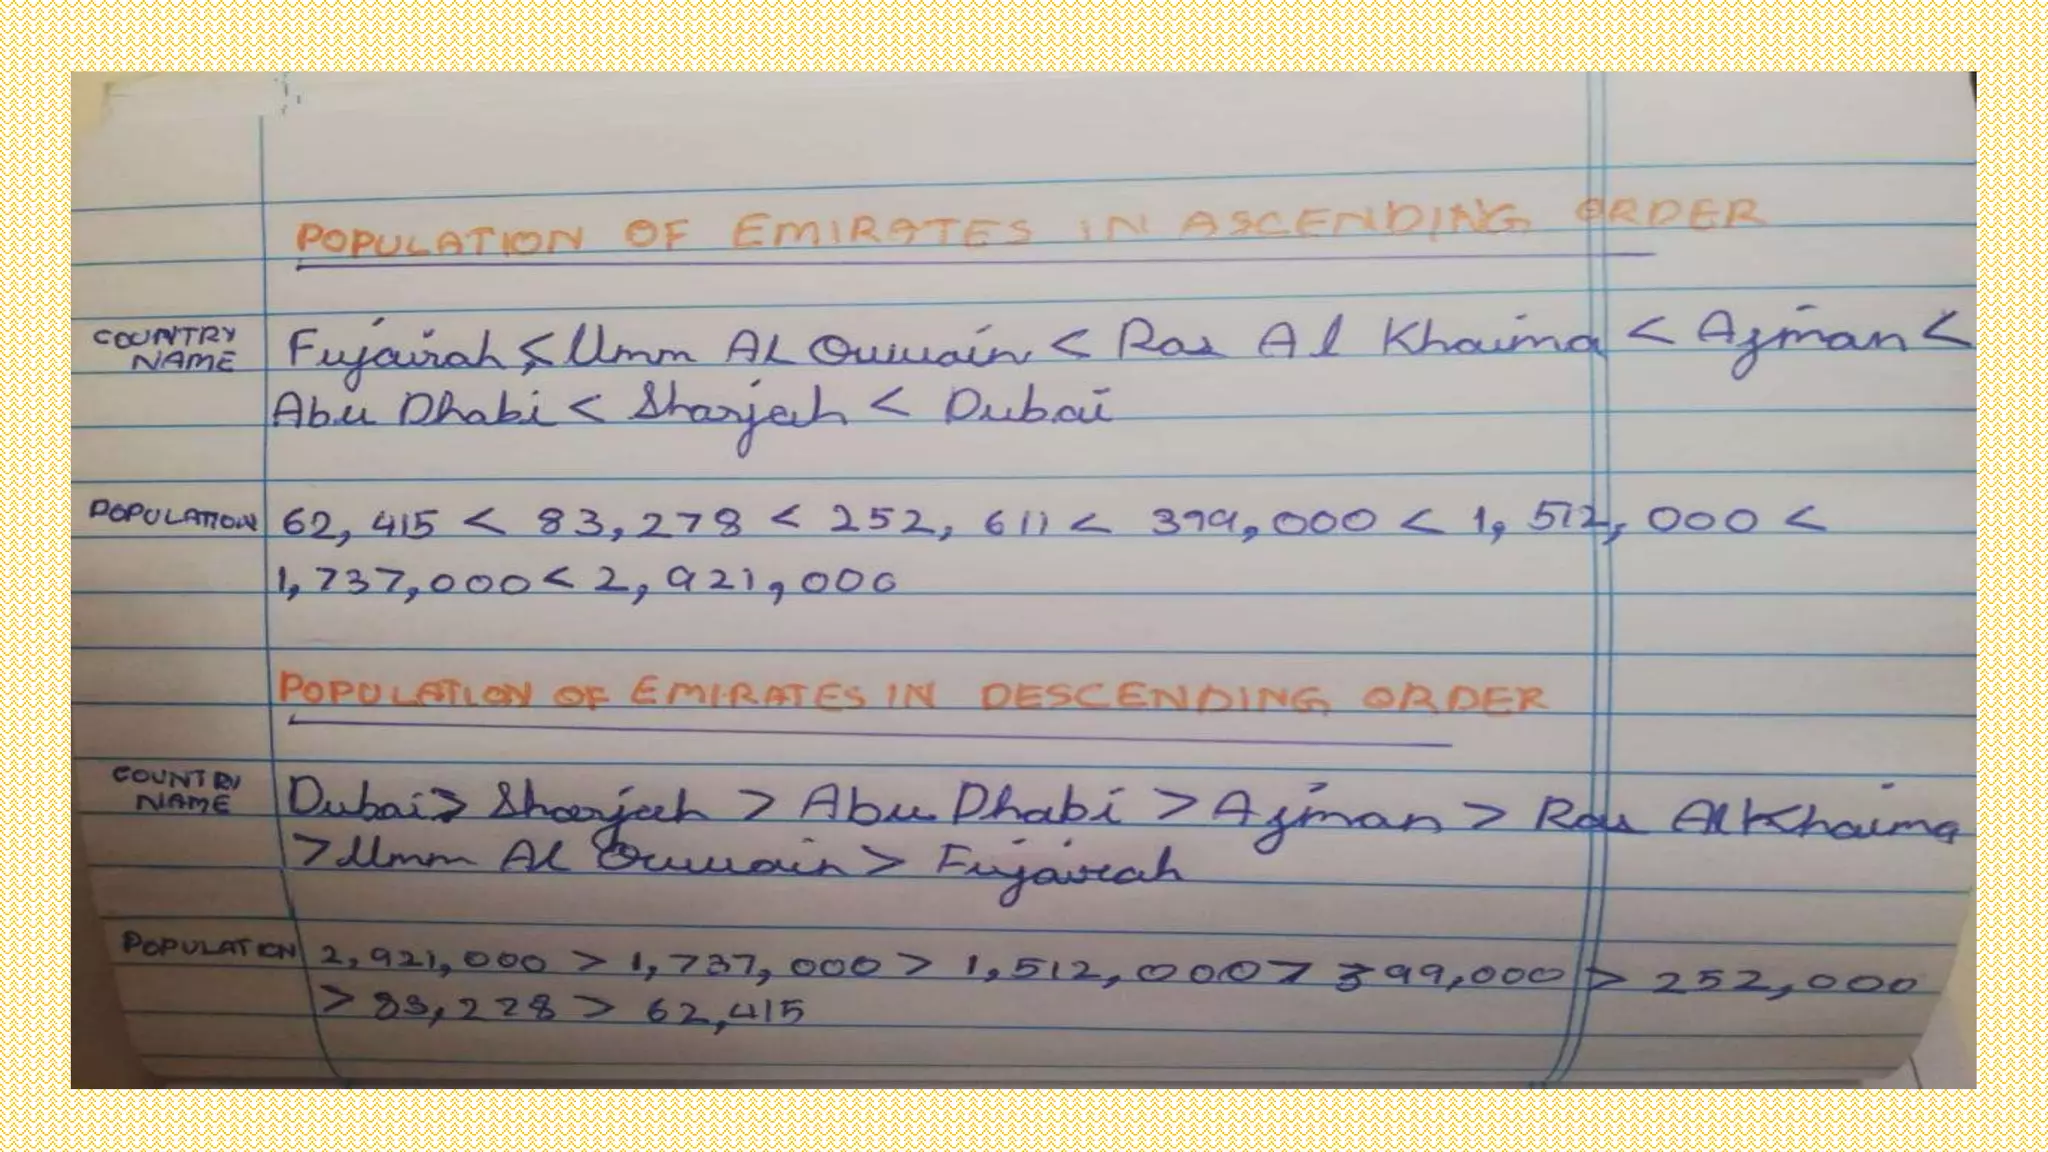 POPULATION OF EMIRATES IN ASCENDING ORDER
COUNTRY NAME
Fujairah < Umm Al Quwain < Ras Al Khaima < Ajman <
Abu Dhabi < Sharjah < Dubai
POPULATION 62,415 < 83,278 < 252,611 < 399,000 < 1,512,000 <
1,737,000 < 2,921,000
POPULATION OF EMIRATES IN DESCENDING ORDER
COUNTRY NAME
Dubai > Sharjah > Abu Dhabi > Ajman > Ras Al Khaima
> Umm Al Quwain > Fujairah
POPULATION 2,921,000 > 1,737,000 > 1,512,000 > 399,000 > 252,000
> 83,228 > 62,415